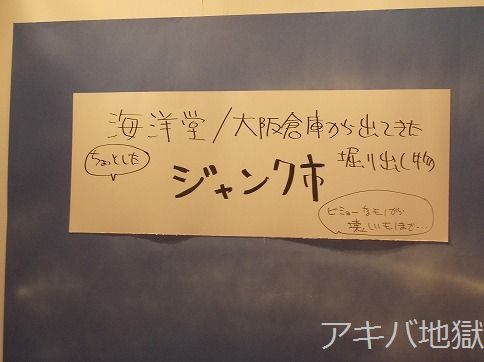 海洋堂/大阪倉庫から出てきた
掘り出し物
ちょっとした
ジャンク市
ビミョーなモノから
懐しいモノまで…
アキバ地獄